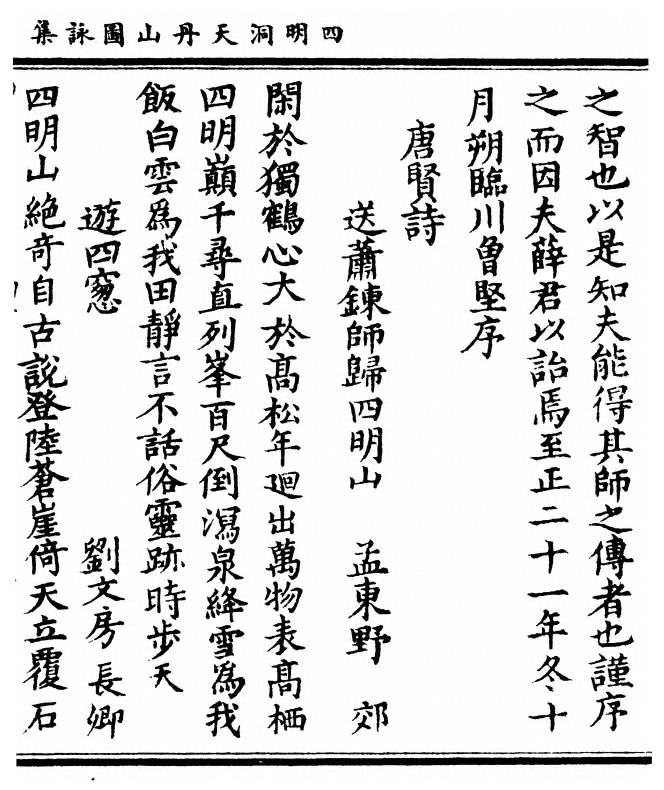 四明洞天丹山圖詠集
之智也以是知夫能得其師之傳者也謹序
之而因夫薛君以詒焉至正二十一年冬十
月朔臨川曾堅序
唐賢詩
送蕭鍊師歸四明山 孟東野 郊
閑於獨鶴心大於高松年迴出萬物表高栖
四明巔千尋直列峯百尺倒瀉泉絳雪爲我
飯白雲爲我田靜言不話俗靈跡時步天
遊四窓 劉文房 長卿
四明山絶奇自古說登陸蒼崖倚天立覆石